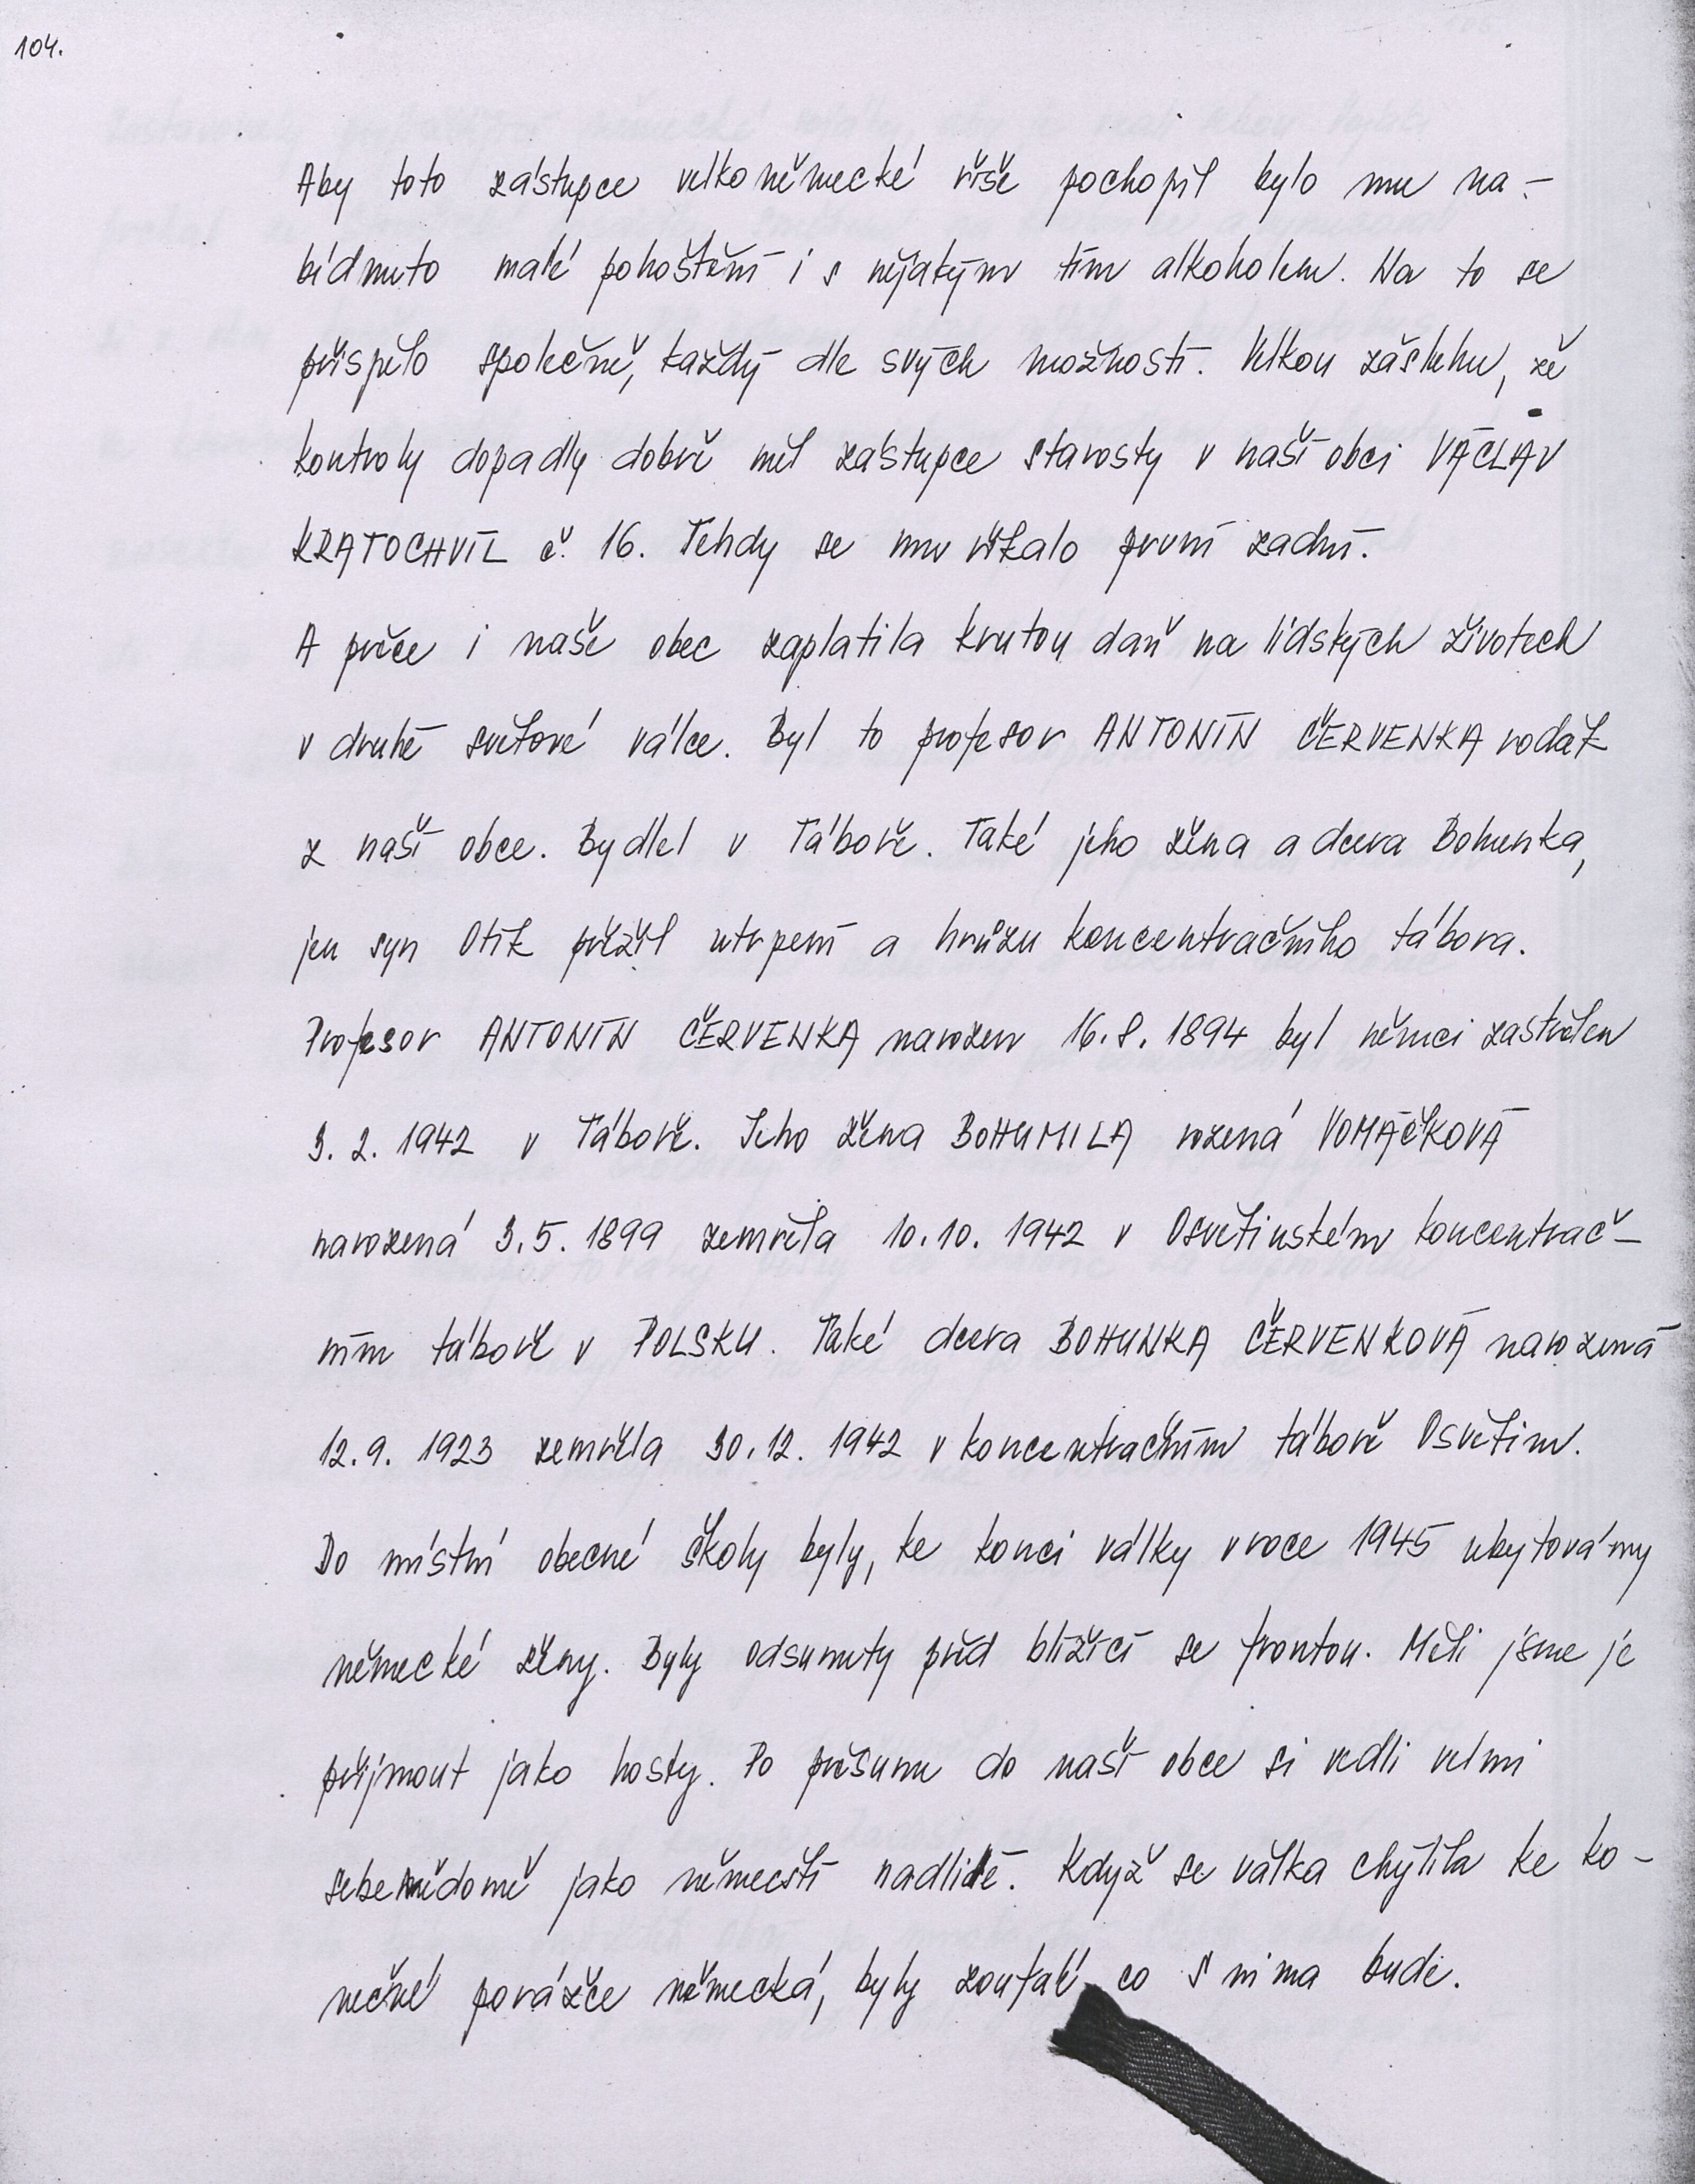 104.
Aby toto zástupce velkoněmecké říše pochopil bylo mu na-
bídnuto malé pohoštění i s nějakým tím alkoholem. Na to se
přispělo společně, každý dle svých možností. Velkou zásluhu, že
kontroly dopadly dobře měl zástupce starosty v naší obci VÁCLAV
KRATOCHVÍL č. 16. Tehdy se mu říkalo první radní.
A přece i naše obec zaplatila krutou daň na lidských životech
v druhé světové válce. Byl to profesor ANTONÍN ČERVENKA rodák
z naší obce. Bydlel v Táboře. Také jeho žena a dcera Bohunka,
jen syn Otík přežil utrpení a hrůzu koncentračního tábora.
Profesor ANTONÍN ČERVENKA narozen 16.8. 1894 byl němci zastřelen
3. 2. 1942 v Táboře. Jeho žena BOHUMILA rozená VOMÁČKOVÁ
narozená 3.5. 1899 zemřela 10.10. 1942 v Osvětinském koncentrač-
ním táboře v POLSKU. Také dcera BOHUNKA ČERVENKOVÁ narozená
12.9. 1923 zemřela 30.12. 1942 v koncentračním táboře Osvětim.
Do místní obecné školy byly, ke konci války v roce 1945 ubytovány
německé ženy. Byly odsunuty před blížící se frontou. Měli jsme je
přijmout jako hosty. Po přesunu do naší obce si vedli velmi
sebevědomě jako němečtí nadlidé. Když se válka chýlila ke ko-
nečné porážce německa, byly zoufalé co s nima bude.